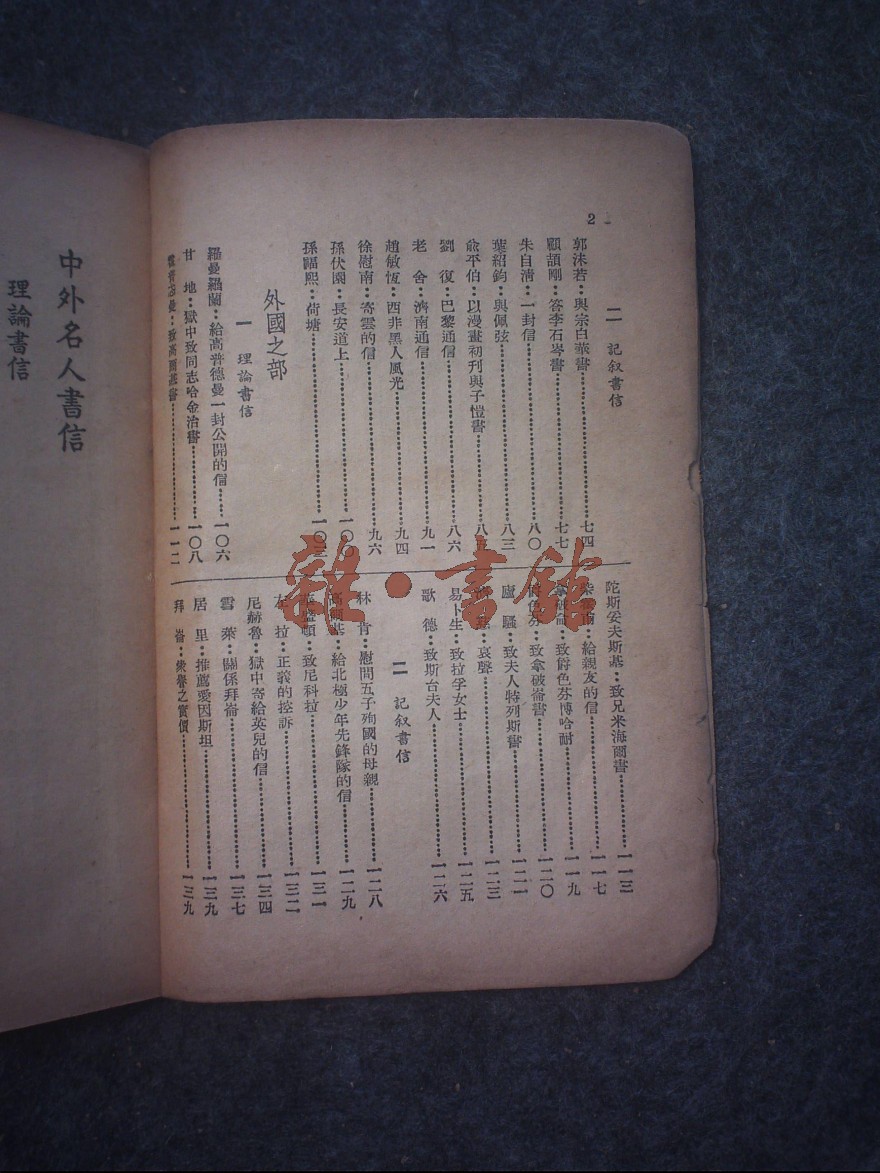 2
二 記叙書信
郭沫若：與宗白華書 七四
顧頡剛：答李石岑書 七七
朱自清：一封信 八〇
葉紹鈞：與佩弦 八三
俞平伯：以漫畫初刊與子愷書 八五
劉復：巴黎通信 八六
老舍：濟南通信 九一
趙敏恆：西非黑人風光 九四
徐慰南：寄雲的信 九六
孫伏園：長安道上 一〇〇
孫福熙：荷塘
外國之部
一 理論書信
羅曼羅蘭：給高普德曼一封公開的信 一〇六
甘地：獄中致同志哈金治書 一〇八
致高爾基書 一一二
陀斯妥夫斯基：致兄米海爾書 一一三
給親友的信 一一七
致爵色芬博哈耐 一一九
致拿破崙書 一二〇
盧騷：致夫人特列斯書 一二一
哀聲 一二三
易卜生：致拉孚女士 一二五
歌德：致斯台夫人 一二六
二 記叙書信
林肯：慰問五子殉國的母親 一二八
高爾基：給北極少年先鋒隊的信 一二九
華盛頓：致尼科拉 一三一
左拉：正義的控訴 一三二
尼赫魯：獄中寄給英兒的信 一三四
雪萊：關係拜崙 一三七
居里：推薦愛因斯坦 一三九
拜崙：榮譽之實價 一三九
中外名人書信
理論書信
雜·書館